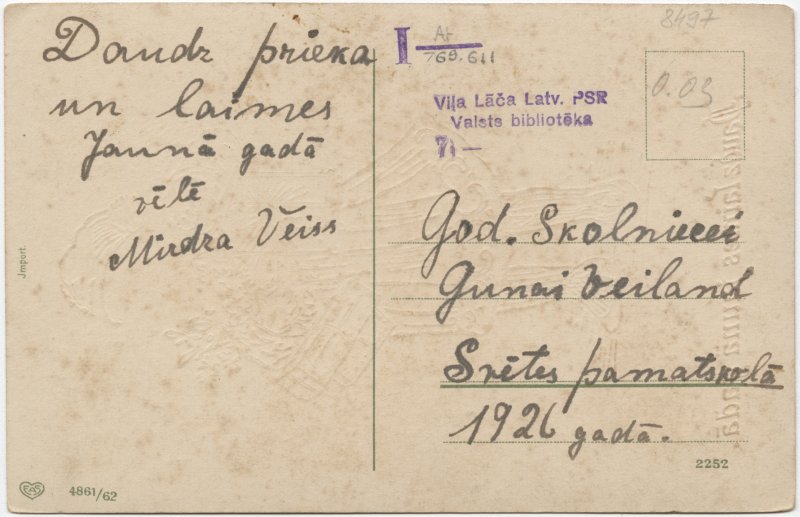 Daudz prieka
un laimes
Jaunā gadā
vēlē
Mirdza Veiss
I At
769.611
8497
Viļa Lāča Latv. PSR
Valsts bibliotēka
0.03
God. Skolniecei
Gunai Veiland
Svētes pamatskolā
1926 gadā.
Jmport.
EAS
4861/62
2252